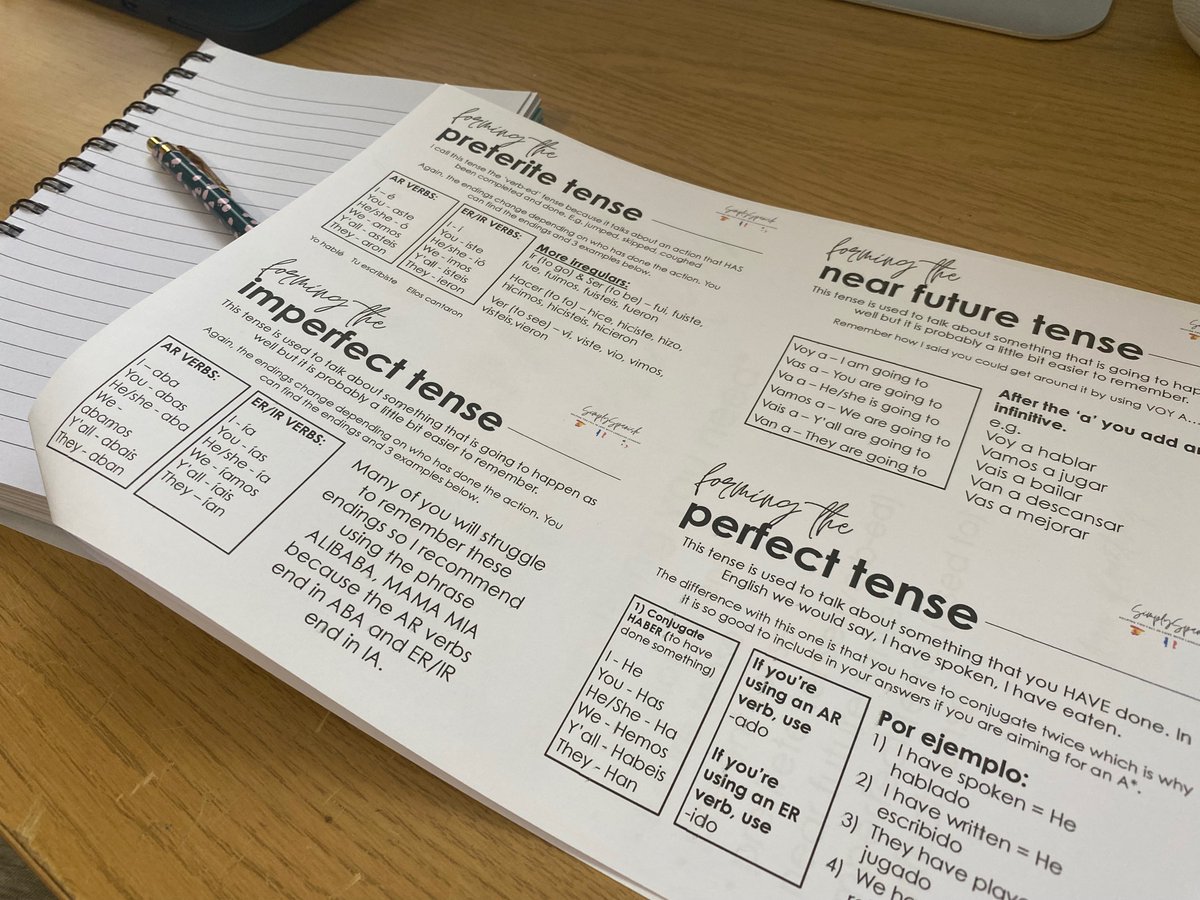 forming the
preterite tense
I call this tense the 'verb-ed' tense because it talks about an action that HAS
been completed and done. E.g. jumped, skipped, coughed
Again, the endings change depending on who has done the action. You
can find the endings and 3 examples below.
AR VERBS:
I – é
You - aste
He/she - ó
We - amos
Y'all - asteis
They - aron
ER/IR VERBS:
I - í
You - iste
He/she - ió
We - imos
Y'all - isteis
They - ieron
More Irregulars:
Ir (to go) & Ser (to be) – fui, fuiste,
fue, fuimos, fuisteis, fueron
Hacer (to to) – hice, hiciste, hizo,
hicimos, hicisteis, hicieron
Ver (to see) – vi, viste, vio, vimos,
visteis, vieron
Yo hablé Tu escribiste Ellos cantaron
SimplySpanish
forming the
imperfect tense
This tense is used to talk about something that is going to happen as
well but it is probably a little bit easier to remember.
Again, the endings change depending on who has done the action. You
can find the endings and 3 examples below.
AR VERBS:
I - aba
You - abas
He/she - aba
We -
abamos
Y'all - abais
They - aban
ER/IR VERBS:
I - ia
You - ias
He/she - ia
We - iamos
Y'all - iais
They – ian
Many of you will struggle
to remember these
endings so I recommend
using the phrase
ALIBABA, MAMA MIA
because the AR verbs
end in ABA and ER/IR
end in IA.
SimplySpanish
forming the
near future tense
This tense is used to talk about something that is going to hap
well but it is probably a little bit easier to remember.
Remember how I said you could get around it by using VOY A...
Voy a – I am going to
Vas a – You are going to
Va a – He/She is going to
Vamos a – We are going to
Vais a – Y'all are going to
Van a – They are going to
After the 'a' you add an
infinitive.
e.g.
Voy a hablar
Vamos a jugar
Vais a bailar
Van a descansar
Vas a mejorar
forming the
perfect tense
This tense is used to talk about something that you HAVE done. In
English we would say, I have spoken, I have eaten.
The difference with this one is that you have to conjugate twice which is why
it is so good to include in your answers if you are aiming for an A*.
1) Conjugate
HABER (to have
done something)
I - He
You - Has
He/She - Ha
We - Hemos
Y'all - Habeis
They - Han
If you're
using an AR
verb, use
-ado
If you're
using an ER
verb, use
-ido
Por ejemplo:
1) I have spoken = He
hablado
2) I have written = He
escribido
3) They have playe
jugado
4) We ha
SimplySpanish